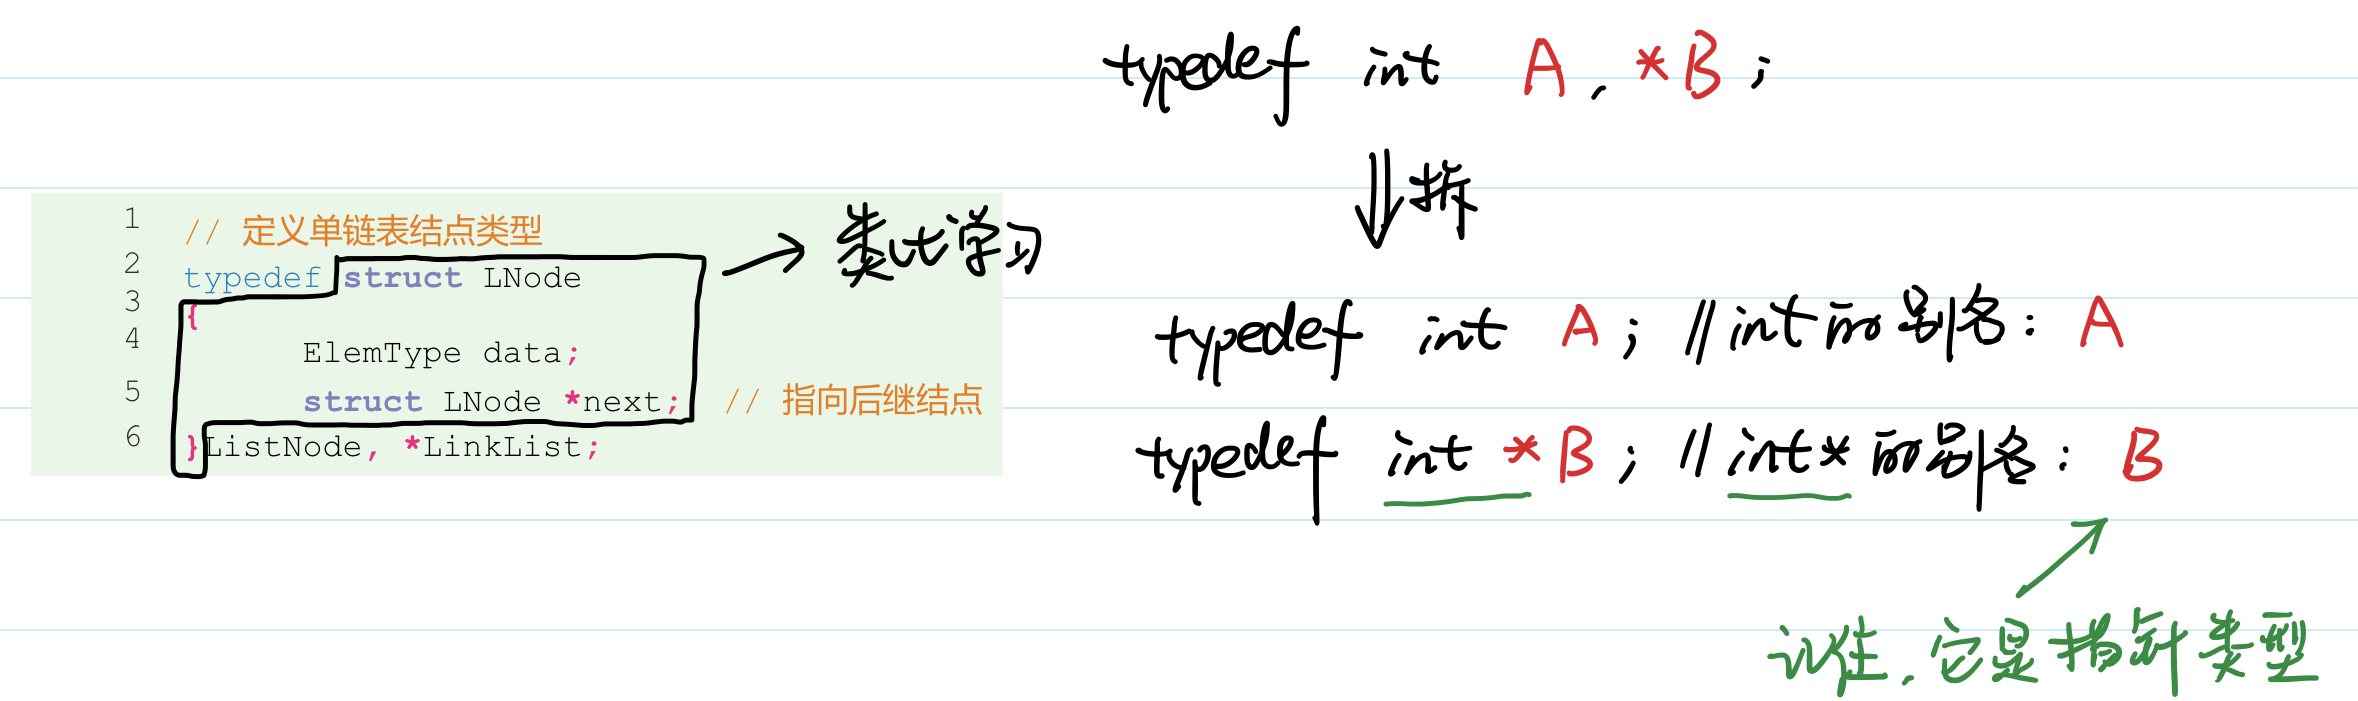 typedef int A, *B;
拆
1 // 定义单链表结点类型
2 typedef struct LNode
3 {
4 ElemType data;
5 struct LNode *next; // 指向后继结点
6 }ListNode, *LinkList;
类比学习
typedef int A; //int的别名: A
typedef int *B; //int*的别名: B
记住,它是指针类型